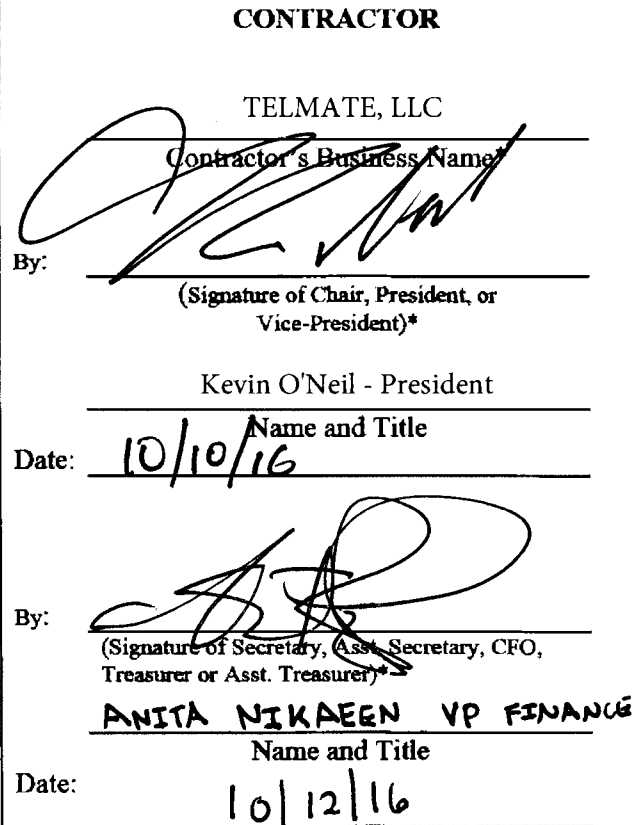 CONTRACTOR
TELMATE, LLC
Contractor's Business Name*
By:
(Signature of Chair, President, or
Vice-President)*
Kevin O'Neil - President
Name and Title
Date: 10/10/16
By:
(Signature of Secretary, Asst. Secretary, CFO,
Treasurer or Asst. Treasurer)*
ANITA NIKAEEN VP FINANCE
Name and Title
Date: 10/12/16